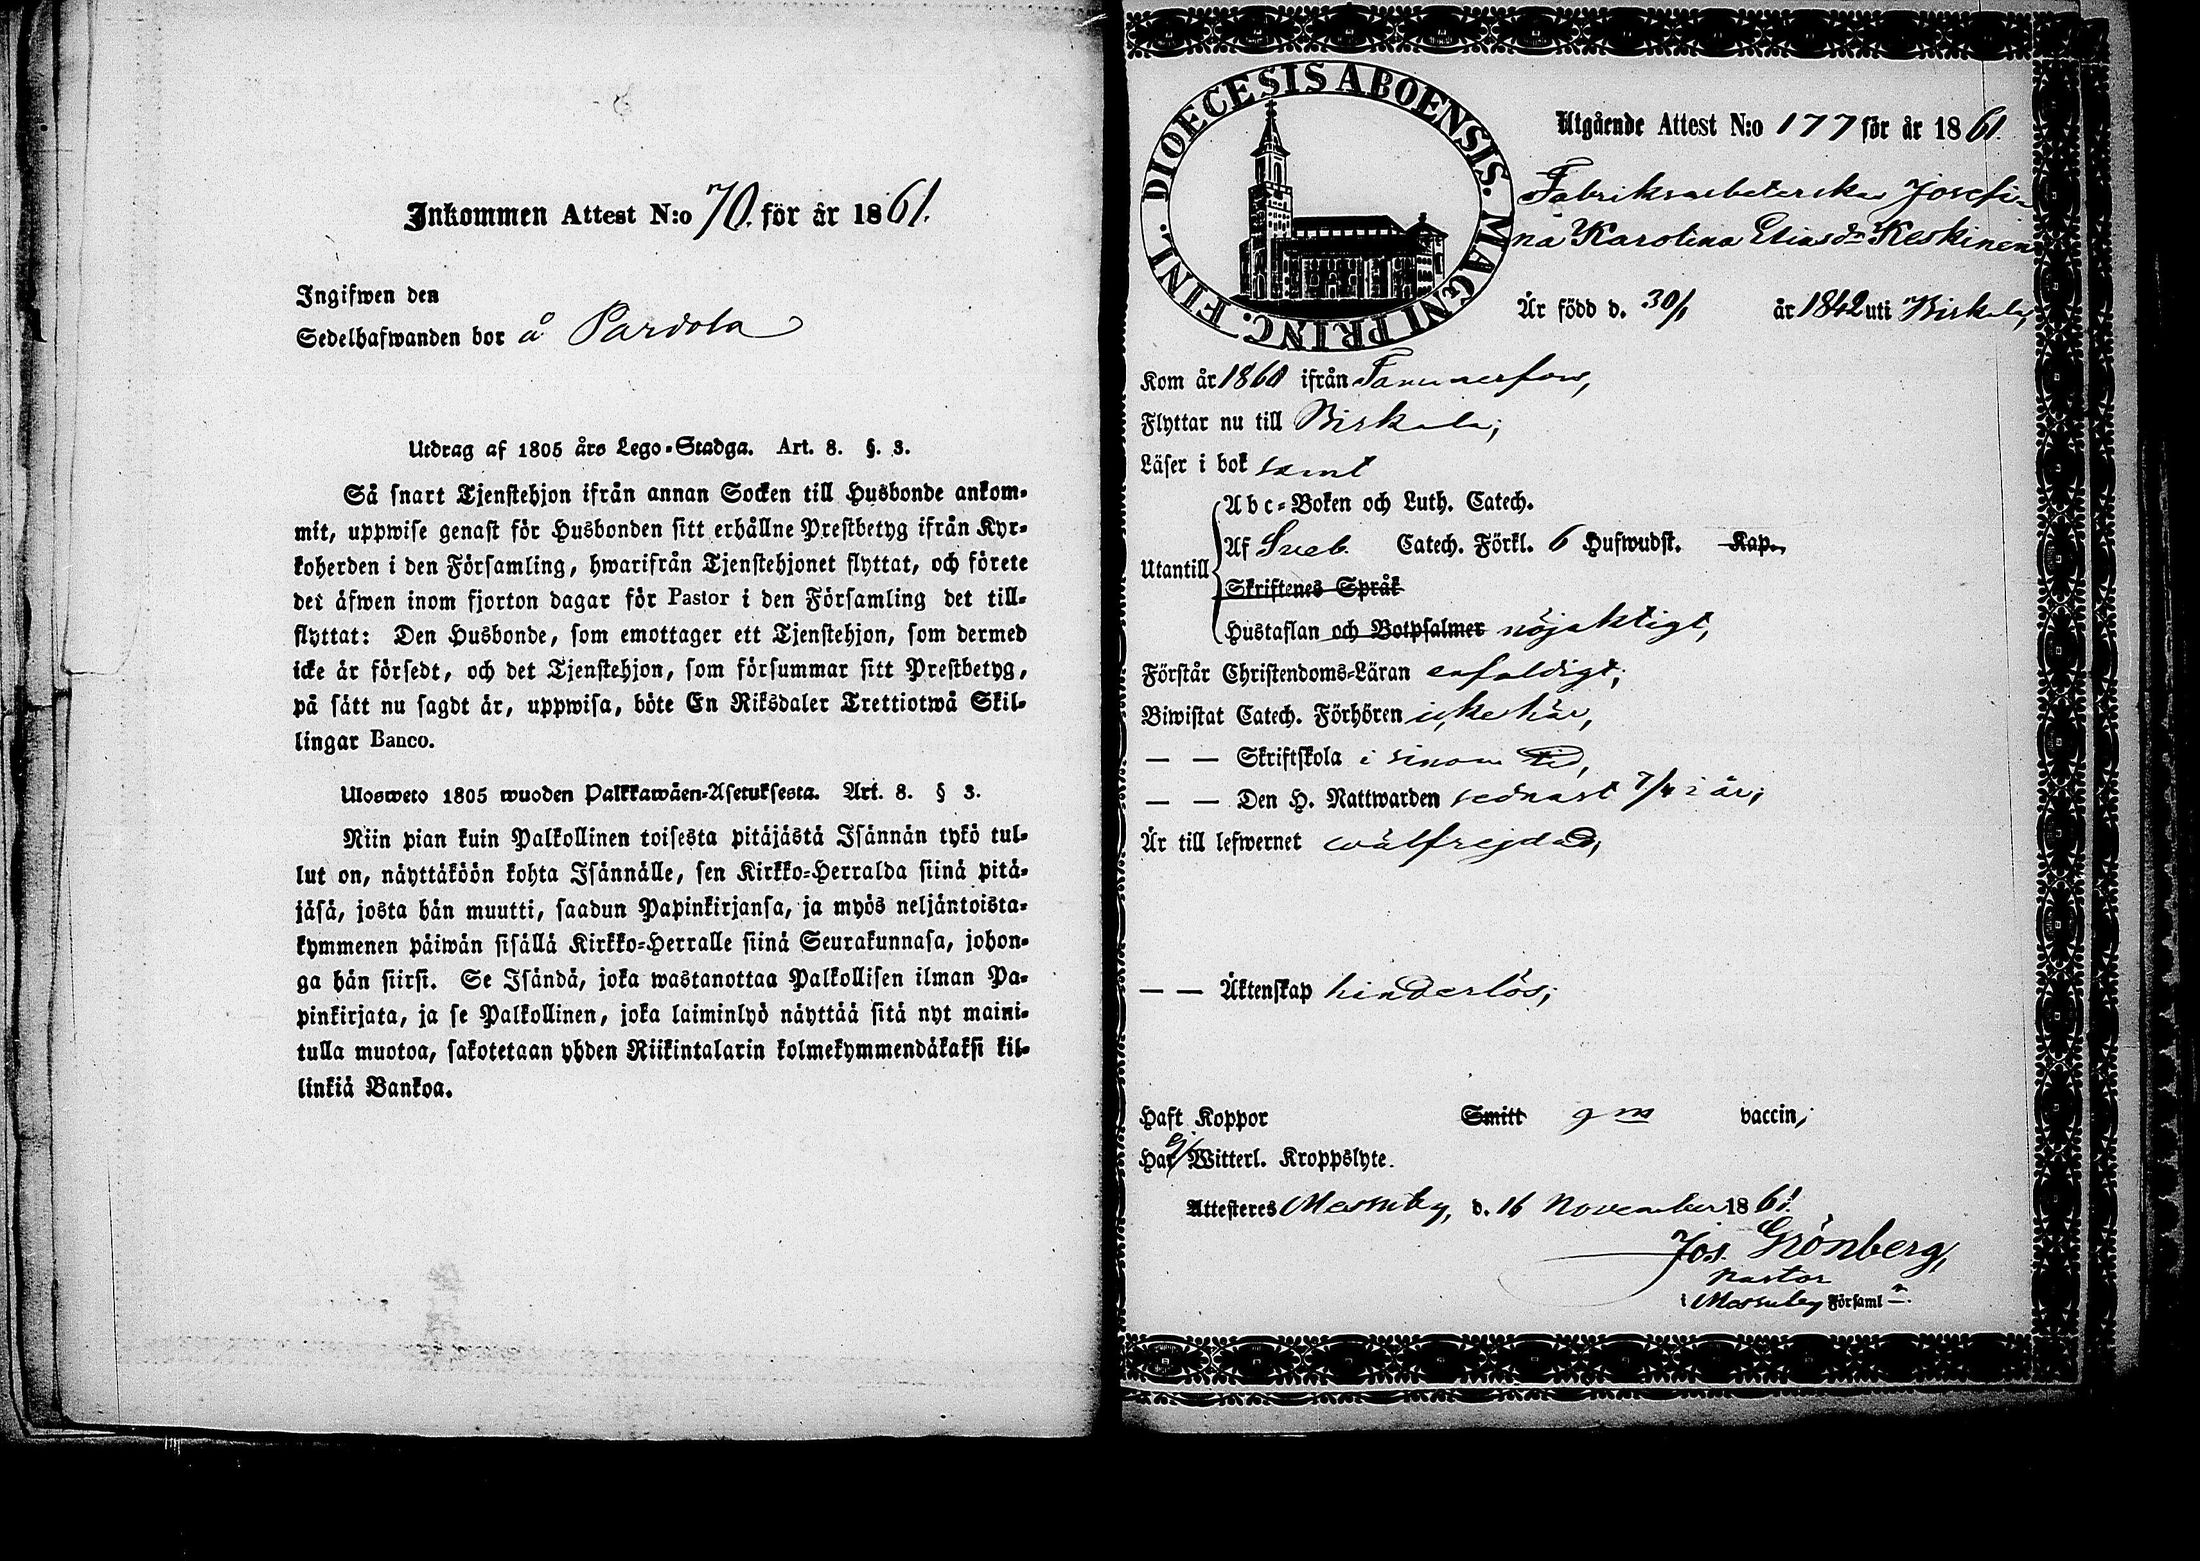 Inkommen Attest N:o 70. för år 1861.
Ingifwen den
Sedelhafwanden bor å Pardola
Utdrag af 1805 års Lego-Stadga. Art. 8. §. 3.
Så snart Tjenstehjon ifrån annan Socken till Husbonde ankom-
mit, uppwise genast för Husbonden sitt erhållne Prestbetyg ifrån Kyr-
koherden i den Församling, hwarifrån Tjenstehjonet flyttat, och förete
det äfwen inom fjorton dagar för Pastor i den Församling det till-
flyttat: Den Husbonde, som emottager ett Tjenstehjon, som dermed
icke är försedt, och det Tjenstehjon, som försummar sitt Prestbetyg,
på sätt nu sagdt är, uppwisa, böte En Riksdaler Trettiotwå Skil-
lingar Banco.
Ulosweto 1805 wuoden Palkkawäen-Asetuksesta. Art. 8. § 3.
Niin pian kuin Palkollinen toisesta pitäjästä Isännän tykö tul-
lut on, näyttäköön kohta Isännälle, sen Kirkko-Herralda siinä pitä-
jäsä, josta hän muutti, saadun Papinkirjansa, ja myös neljäntoista-
kymmenen päiwän sisällä Kirkko-Herralle siinä Seurakunnasa, johon-
ga hän siirsi. Se Isändä, joka wastanottaa Palkollisen ilman Pa-
pinkirjata, ja se Palkollinen, joka laiminlyö näyttää sitä nyt maini-
tulla muotoa, sakotetaan yhden Riikintalarin kolmekymmendäkaksi kil-
linkiä Bankoa.
DIOECESIS ABOENSIS. MAGNI PRINC. FINL.
Utgående Attest N:o 177 för år 1861.
Fabriksarbeterskan Josefi-
na Karolina Eliasdr Keskinen
Är född d. 30/1 år 1842 uti Birkala,
Kom år 1860 ifrån Tammerfors,
Flyttar nu till Birkala;
Läser i bok samt
Utantill
Abc-Boken och Luth. Catech.
Af Sveb. Catech. Förkl. 6 Hufwudst. Kap.,
Skriftenes Språk
Hustaflan och Botpsalmer nöjaktigt,
Förstår Christendoms-Läran enfaldigt;
Biwistat Catech. Förhören icke här,
— — Skriftskola i sinom tid,
— — Den H. Nattwarden sednast 7/4 i år;
Är till lefwernet wälfrejdad,
— — Äktenskap hinderlös;
Haft Koppor Smitt gm vaccin;
Har ej Witterl. Kroppslyte.
Attesteres Messuby, d. 16 November 1861.
Jos. Grönberg,
Pastor
i Messuby Församl n.